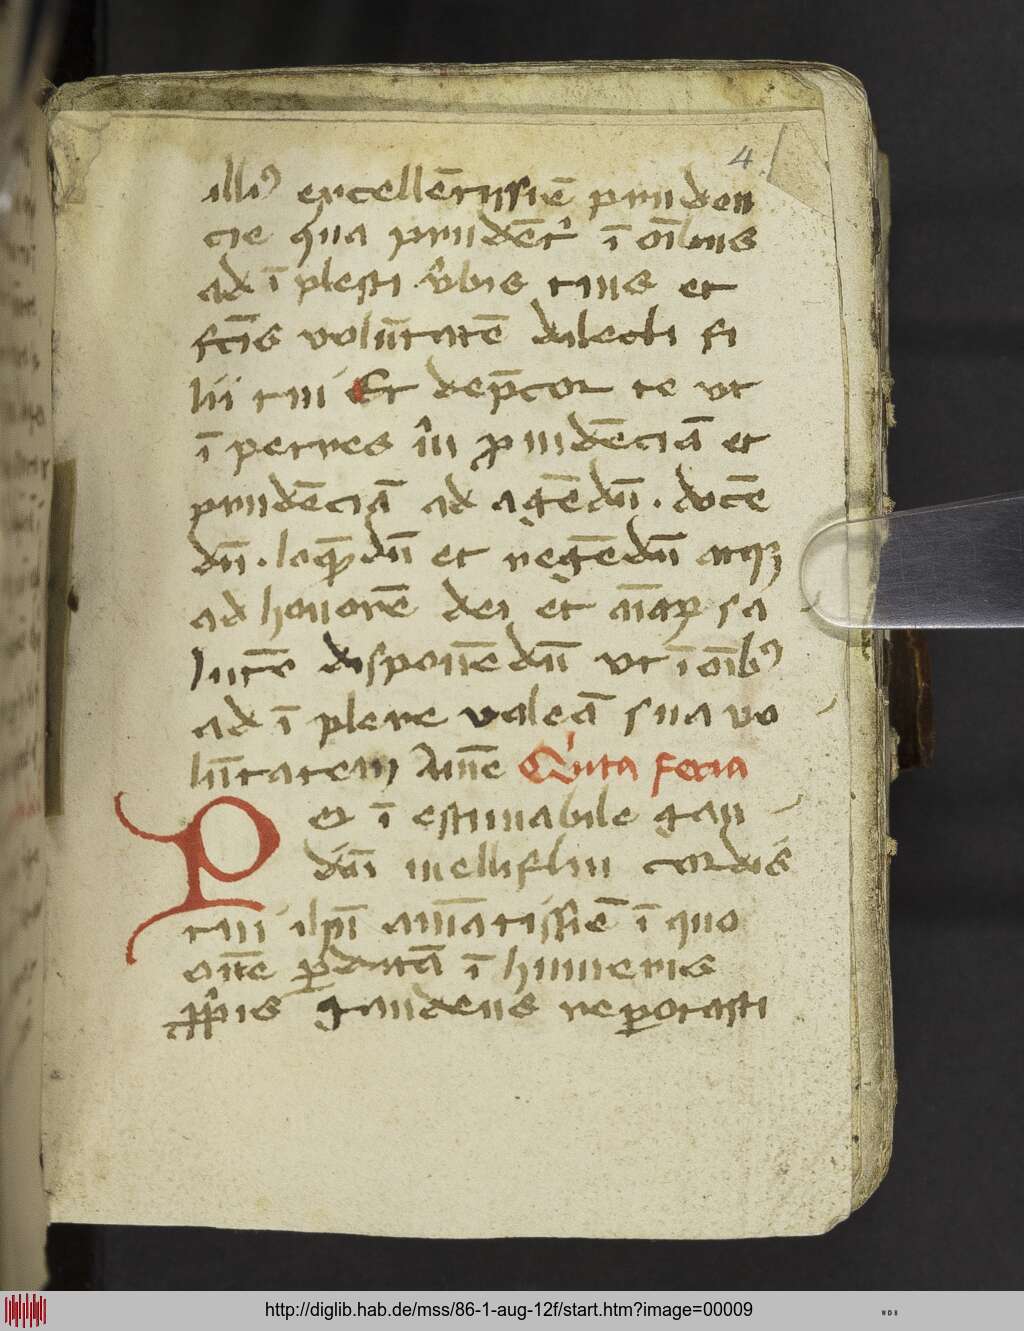 4.
illiꝰ excellētissīe pruden
cie qua prudēt᷑ ī oībus
ad īplesti v᷑bis tuis et
fc̄is volūtatē dilecti fi
lii tui Et dep̄cor te ut
ī petres m̄ prudēciā et
prudēciā ad agēdū . docē
dū . loq̄ndū et regēdū atqꝫ
ad honorē dei et aīaꝝ sa
lutē disponēdū ut ī oībꝰ
ad īplere valeā sua vo
lūtatem Amē Quīta feria
Per īestimabile gau
diū melliflui cordis
tui ilp̄i amātissīe ī quo
oīte ꝑdutā ī humeris
ꝓpris gaudens reportasti
http://diglib.hab.de/mss/86-1-aug-12f/start.htm?image=00009
WDB